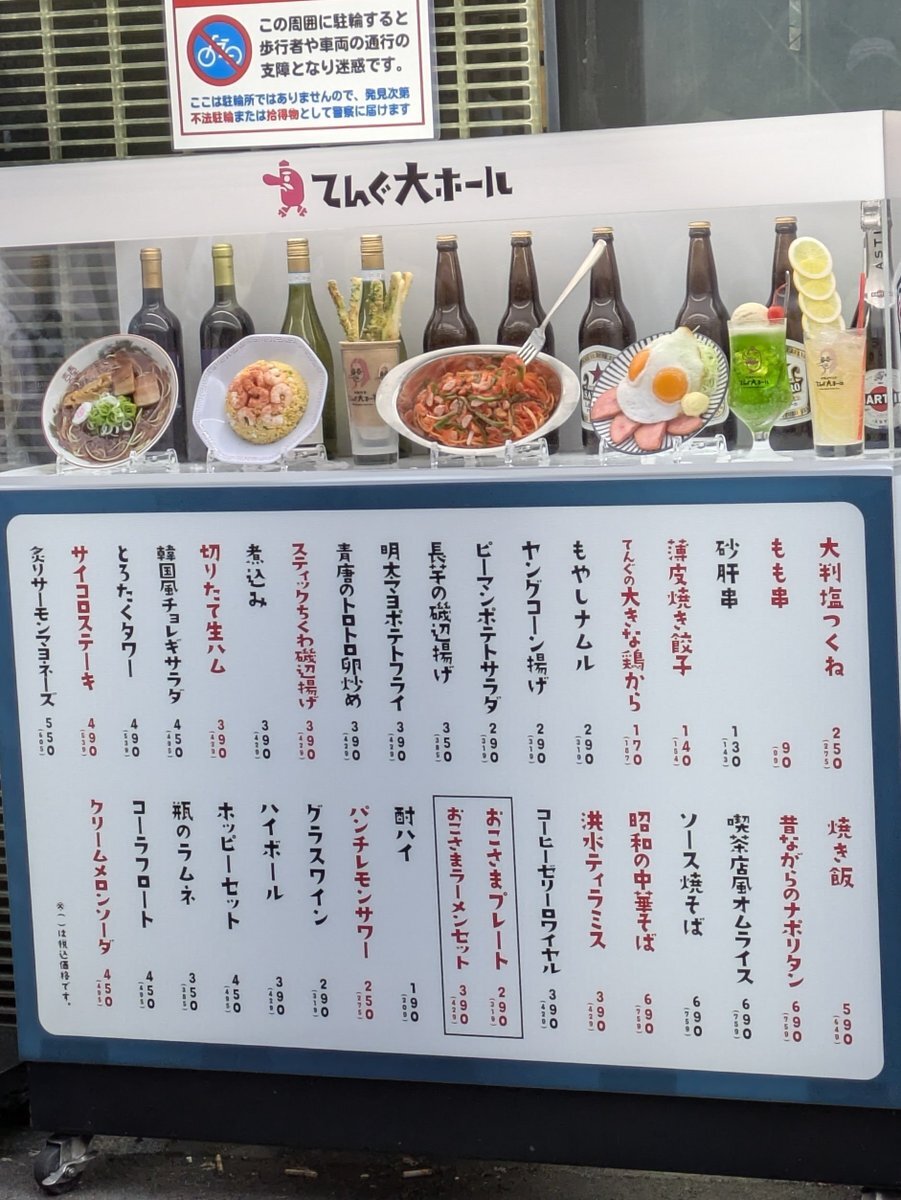 この周囲に駐輪すると
歩行者や車両の通行の
支障となり迷惑です。
ここは駐輪所ではありませんので、発見次第
不法駐輪または拾得物として警察に届けます
てんぐ大ホール
大判塩つくね 250 (275)
もも串 90 (99)
砂肝串 130 (143)
薄皮焼き餃子 140 (154)
てんぐの大きな鶏から 170 (187)
もやしナムル 290 (319)
ヤングコーン揚げ 290 (319)
ピーマンポテトサラダ 290 (319)
長芋の磯辺揚げ 350 (385)
明太マヨポテトフライ 390 (429)
青唐のトロトロ卵炒め 390 (429)
スティックちくわ磯辺揚げ 390 (429)
煮込み 390 (429)
切りたて生ハム 390 (429)
韓国風チョレギサラダ 450 (495)
とろたくタワー 490 (539)
サイコロステーキ 490 (539)
炙りサーモンマヨネーズ 550 (605)
焼き飯 590 (649)
昔ながらのナポリタン 690 (759)
喫茶店風オムライス 690 (759)
ソース焼そば 690 (759)
昭和の中華そば 690 (759)
洪水ティラミス 390 (429)
コーヒーゼリーロワイヤル 390 (429)
おこさまプレート 290 (319)
おこさまラーメンセット 390 (429)
酎ハイ 190 (209)
パンチレモンサワー 250 (275)
グラスワイン 290 (319)
ハイボール 390 (429)
ホッピーセット 450 (495)
瓶のラムネ 350 (385)
コーラフロート 450 (495)
クリームメロンソーダ 450 (495)
※( )は税込価格です。